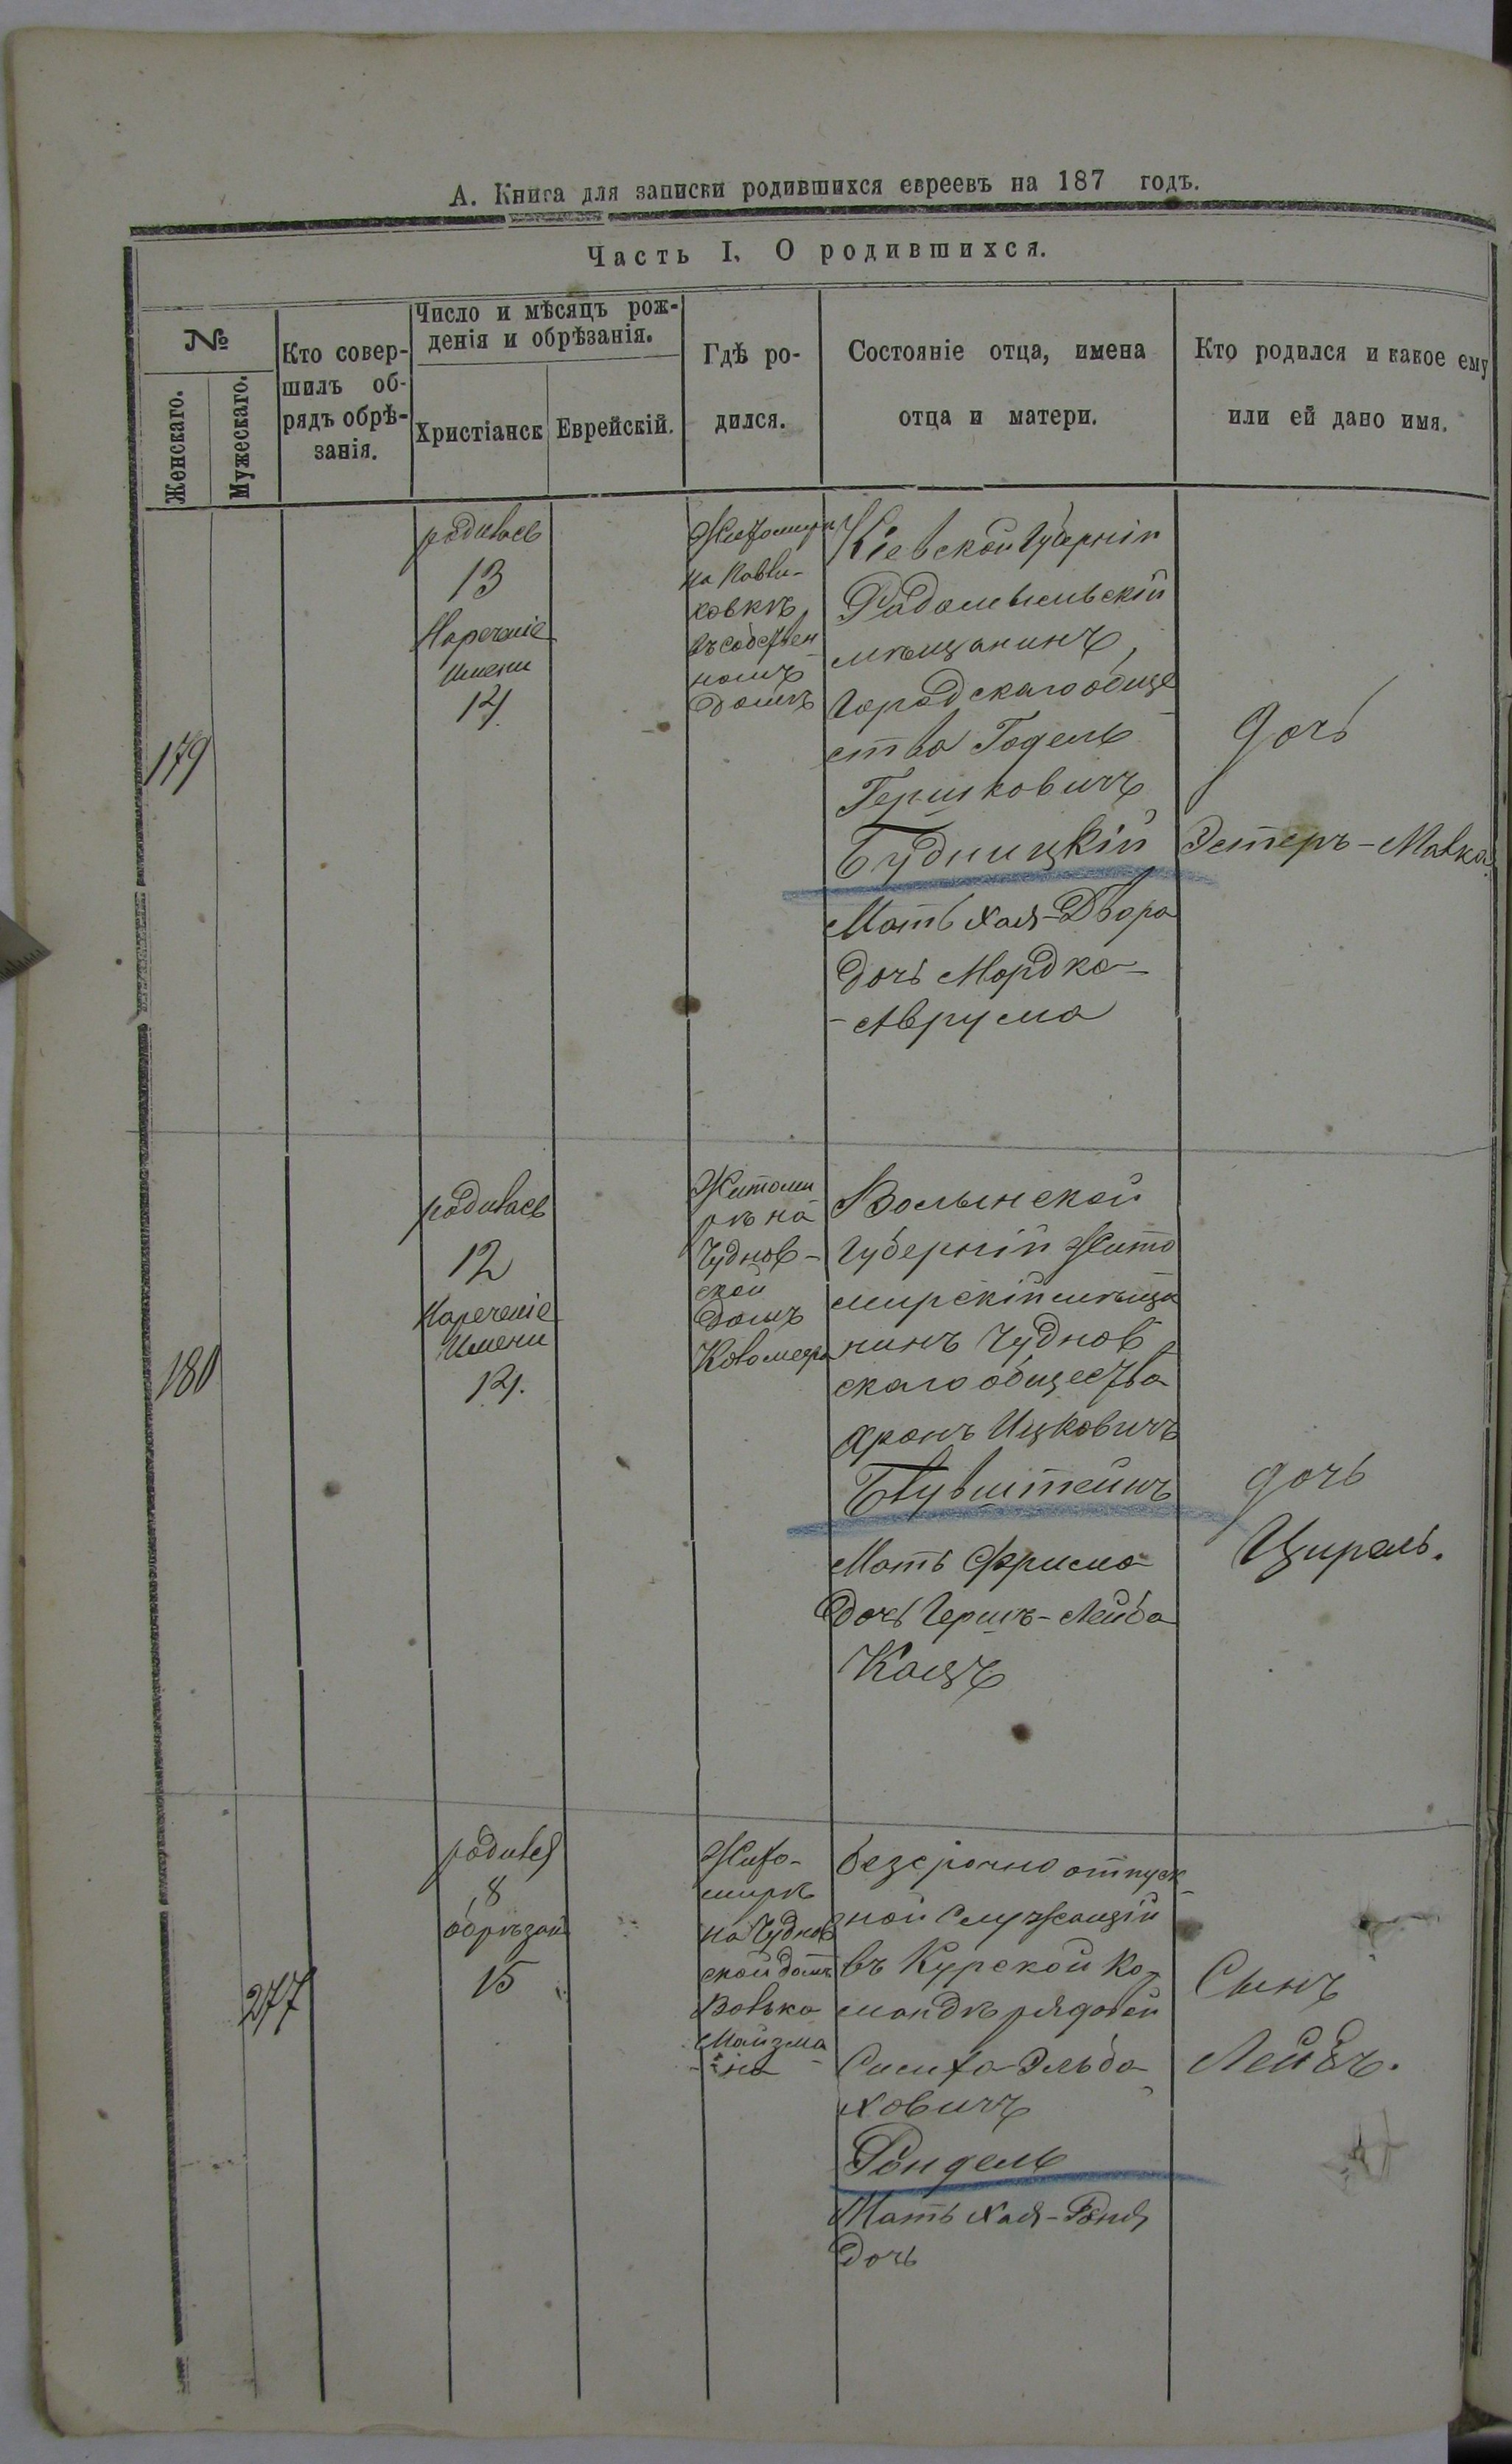 А. Книга для записки родившихся евреевъ на 187 годъ.
Часть I. О родившихся.
№
Женскаго.
Мужескаго.
Кто совер-
шилъ об-
рядъ обрѣ-
занія.
Число и мѣсяцъ рож-
денія и обрѣзанія.
Христіанск
Еврейскій.
Гдѣ ро-
дился.
Состояніе отца, имена
отца и матери.
Кто родился и какое ему
или ей дано имя.
179
родилась
13
Нареченіе
имени
14
на
ковкѣ,
въ собствен
номъ
домѣ
Кіевской Губерніи
Радомысльскій
мѣщанинъ,
Городскаго обще
ства Годель
Гершковичъ
Будницкій
Мать Хая-Двора
дочь Мордко-
-Аврума
дочь
Эстеръ-Малка.
180
родилась
12
Нареченіе
Имени
14.
Житоми
рѣ на
Чуднов-
ской
домъ
Волынской
Губерніи Жито
мирскій мѣща
нинъ Чуднов
скаго общества
Аронъ Ицковичъ
Мать Фрима
дочь Гершъ-Лейба
Кацъ
дочь
Цирель.
277
родился
8
обрѣзан
15
Жито-
мирѣ
на Чуднов
ской домъ
Волька
Майзма
на
безсрочно отпуск
ной служащій
въ Курской ко
мандѣ рядовой
Симха Эльба
ховичъ
Рондель
Мать Хая-
дочь
Сынъ
Лейбъ.